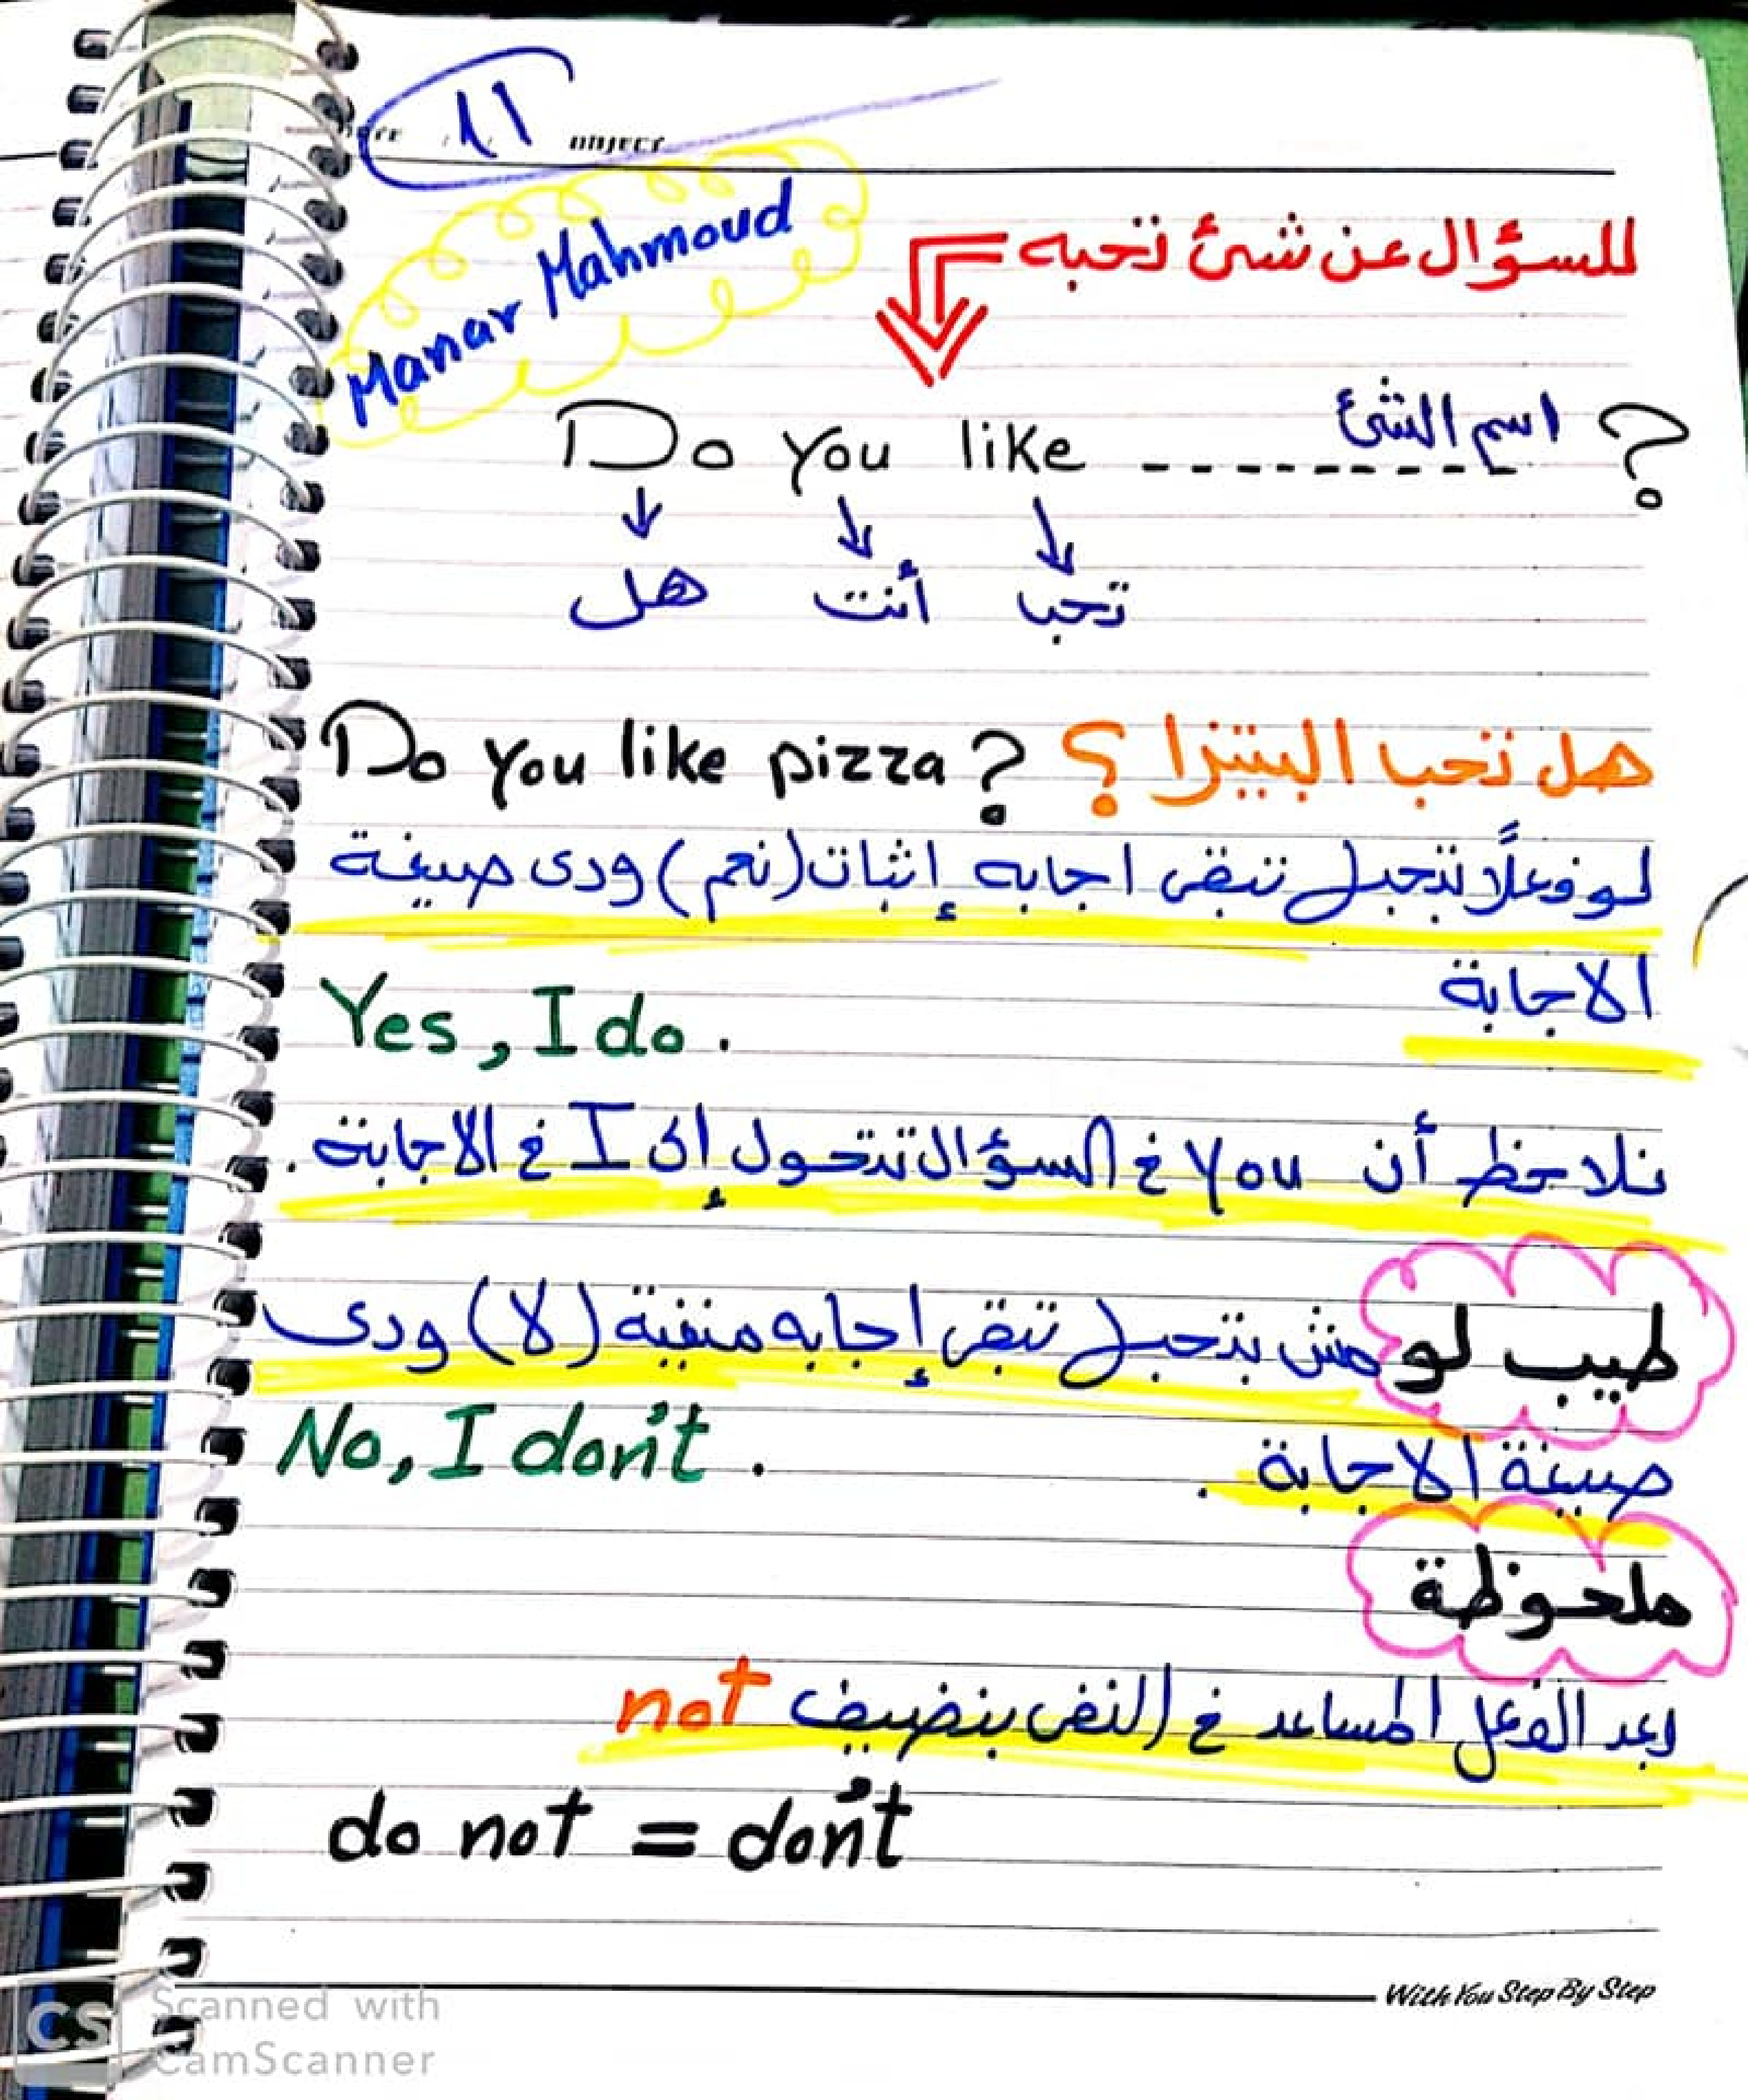 11
Manar Mahmoud
للسؤال عن شئ تحبه
Do you like --------- اسم الشئ ?
هل أنت تحب
Do you like pizza? هل تحب البيتزا ؟
لو فعلًا بتحبل تبقى اجابه إثبات (نعم) ودى صيغة
الاجابة
Yes, I do.
نلاحظ أن you فى السؤال تتحول إلى I فى الاجابة.
طيب لو مش بتحبل تبقى إجابه منفية (لا) ودى
صيغة الاجابة.
No, I don't.
ملحوظة
بعد الفعل المساعد فى النفى بنضيف not
do not = don't
With You Step By Step
CS Scanned with
CamScanner